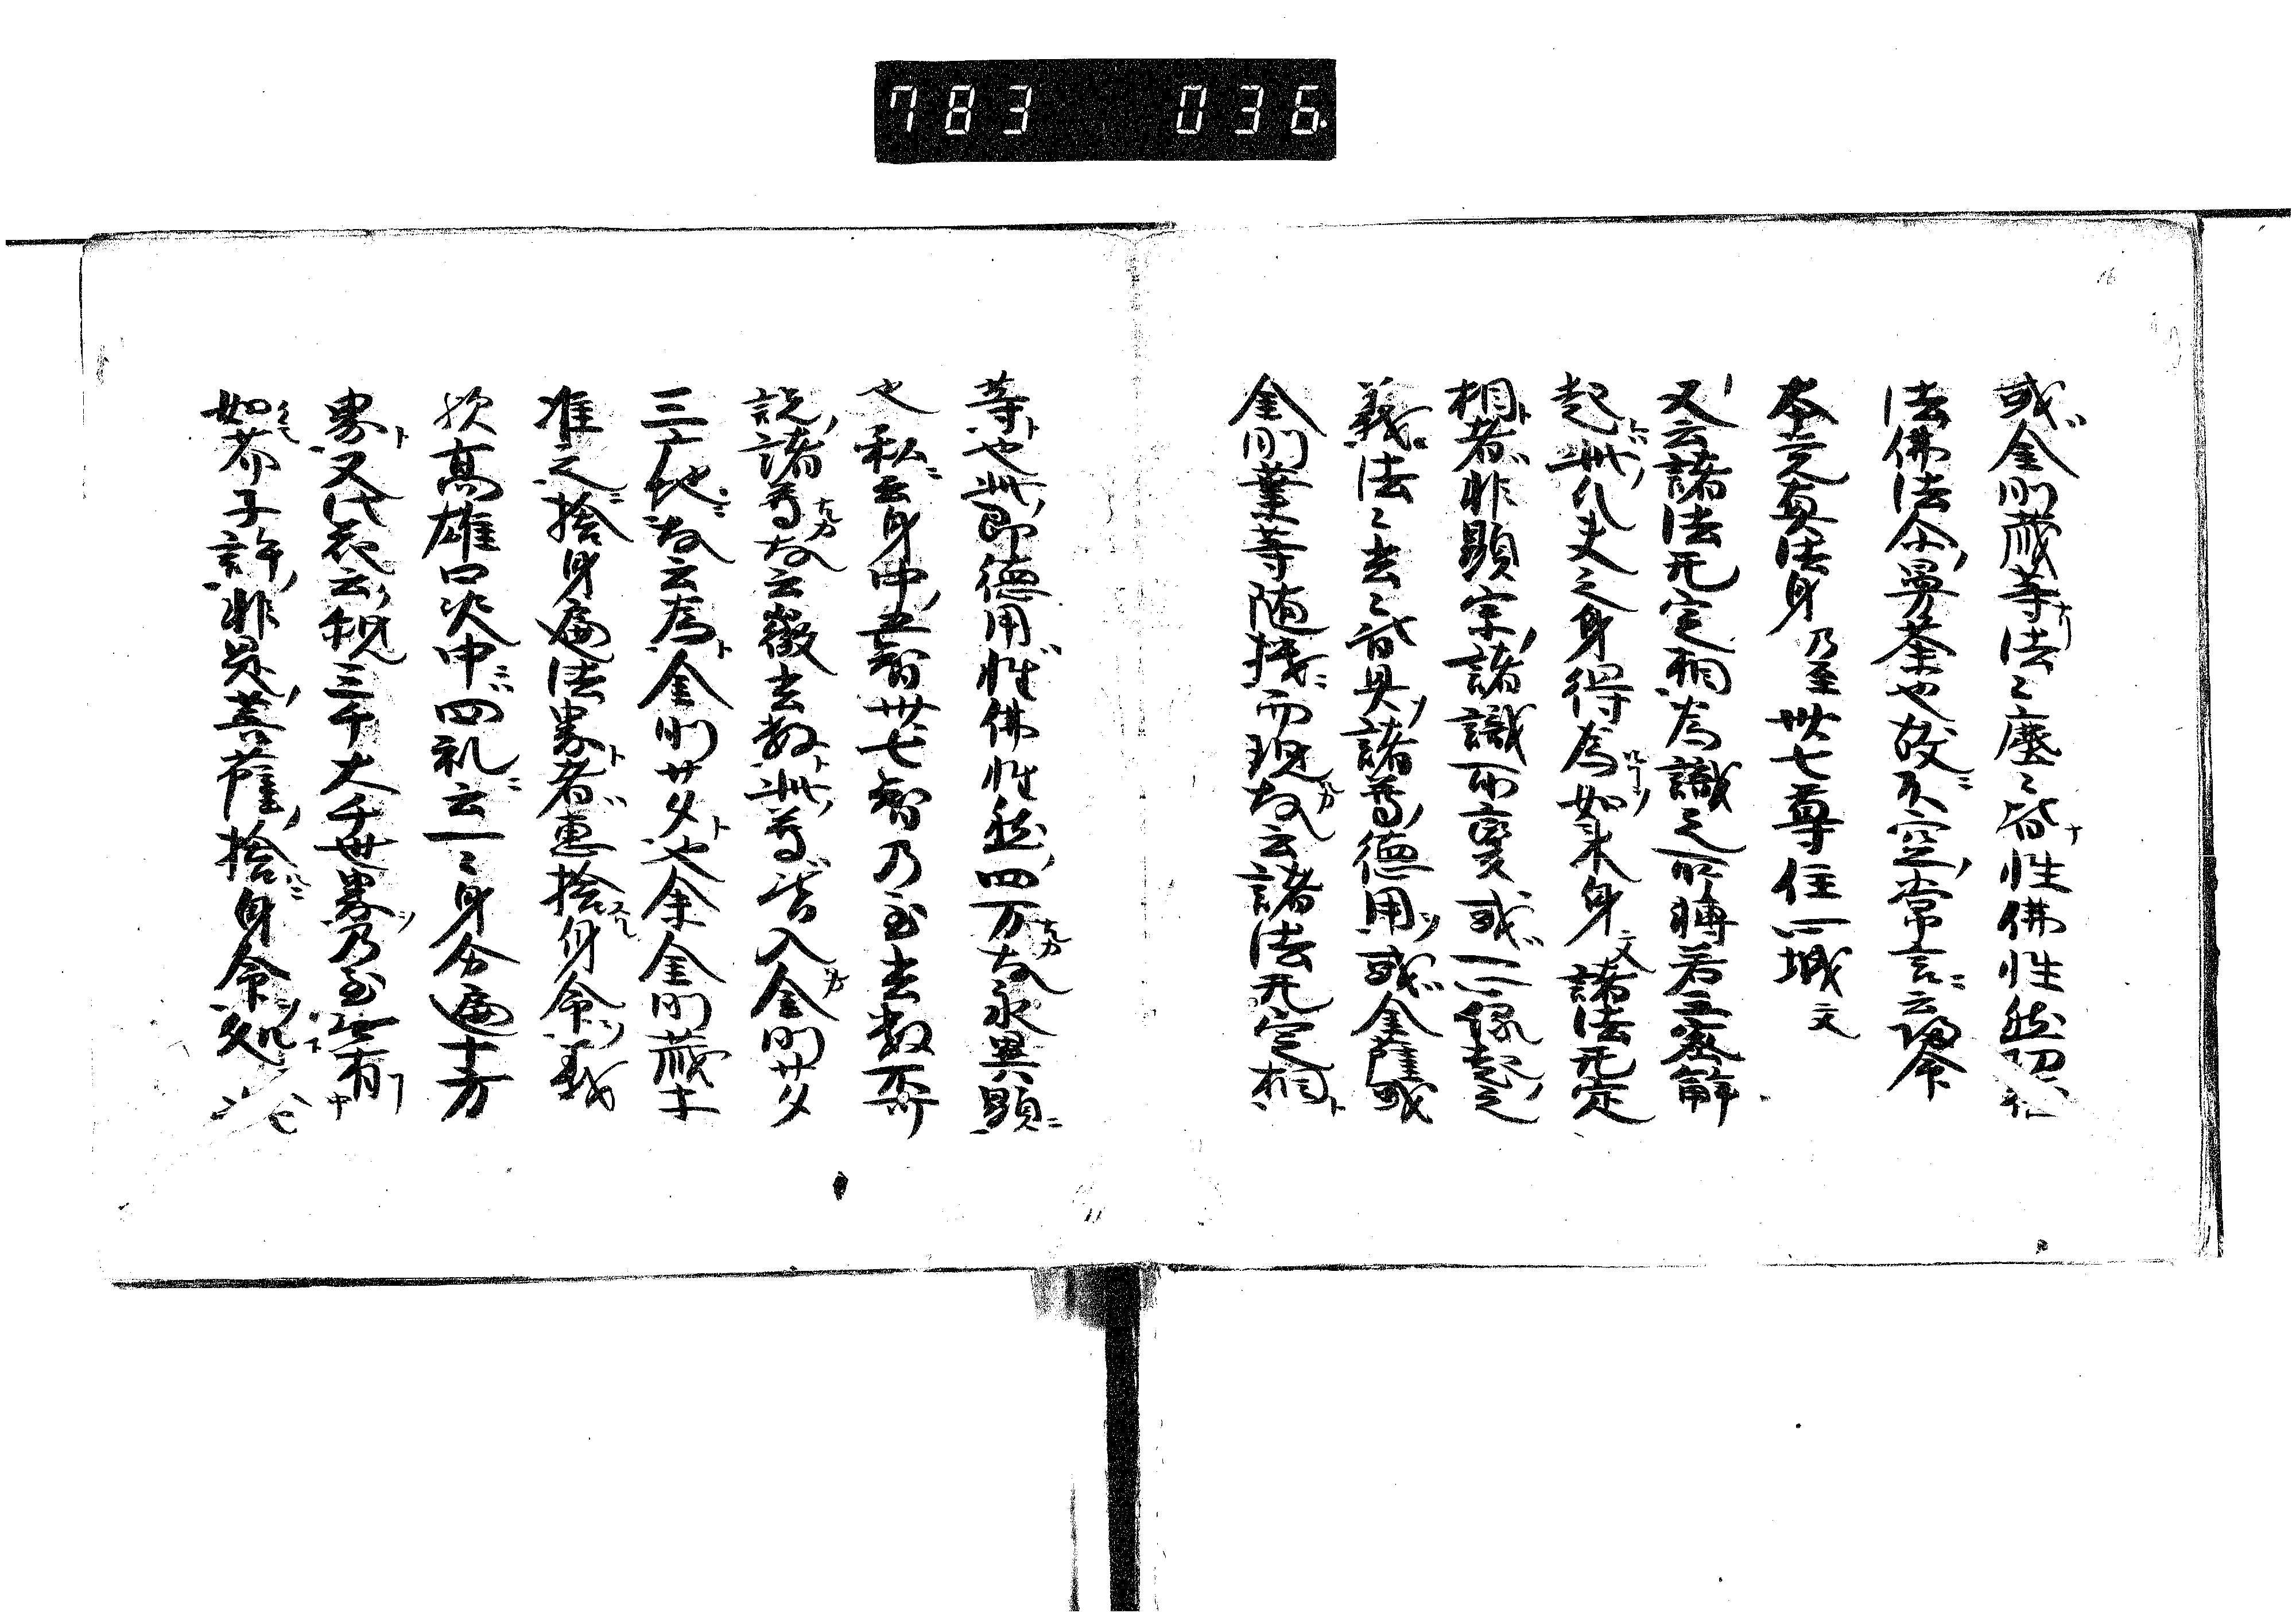 783 036
或金剛蔵等法々塵々皆性佛性然
法佛法尒曼荼也故不空常言云歸命
本覚真法身乃至卅七尊住心城文
又云諸法无定相為識之所轉若五蜜解
起此凡夫之身得為如来身文諸法无定
相者非顕宗諸識所変或一心縁起之
義法々去々皆具諸尊徳用或金薩或
金剛業等随機而現故云諸法无定相
等也此即徳用性佛性然四万故永異顕
也私云身中五智卅七智乃至去数
説諸尊故云徴去数此尊皆入金剛廾
三广地故云為金剛廾也余金剛蔵
准之捨身遍法界者恵捨身命義
欤高雄口决中四礼云一々身分遍十方
界又代花云観三千大千世界乃至无有
如芥子許非是菩薩捨身命処